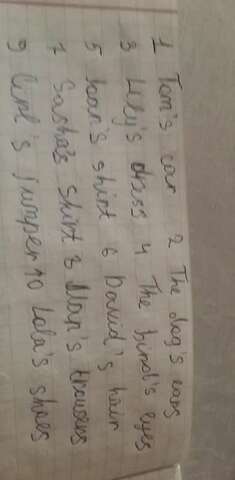 1 Tom's car 2 The dog's ears
3 Lily's dress 4 The bird's eyes
5 Ivan's shirt 6 David's hair
7 Sasha's skirt 8 Man's trousers
9 Girl's jumper 10 Lola's shoes